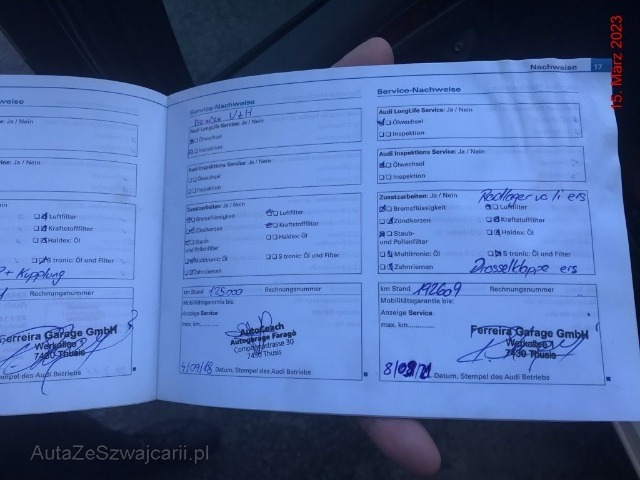 15. März 2023
Nachweise 17
weise
Ja / Nein
Ja / Nein
Ja / Nein
Luftfilter
Kraftstofffilter
Haldex: Öl
S tronic: Öl und Filter
+ Kupplung
Rechnungsnummer
Ferreira Garage GmbH
Werkallee 1
7430 Thusis
Stempel des Audi Betriebs
Service-Nachweise
V+H
Audi LongLife Service: Ja / Nein
Ölwechsel
Inspektion
Audi Inspektions Service: Ja / Nein
Ölwechsel
Inspektion
Zusatzarbeiten: Ja / Nein
Bremsflüssigkeit Luftfilter
Zündkerzen Kraftstofffilter
Staub- Haldex: Öl
und Pollenfilter
Multitronic: Öl S tronic: Öl und Filter
Zahnriemen
km Stand 125000 Rechnungsnummer
Mobilitätsgarantie bis:
Anzeige Service
max. km
AutoCoach
Autogarage Faragò
30
7430 Thusis
Datum, Stempel des Audi Betriebs
Service-Nachweise
Audi LongLife Service: Ja / Nein
Ölwechsel
Inspektion
Audi Inspektions Service: Ja / Nein
Ölwechsel
Inspektion
Zusatzarbeiten: Ja / Nein Radlager vo li ers
Bremsflüssigkeit Luftfilter
Zündkerzen Kraftstofffilter
Staub- Haldex: Öl
und Pollenfilter
Multitronic: Öl S tronic: Öl und Filter
Zahnriemen Drosselklappe ers
km Stand 192609 Rechnungsnummer
Mobilitätsgarantie bis:
Anzeige Service
max. km
Ferreira Garage GmbH
Werkallee 1
7430 Thusis
Datum, Stempel des Audi Betriebs
AutaZeSzwajcarii.pl